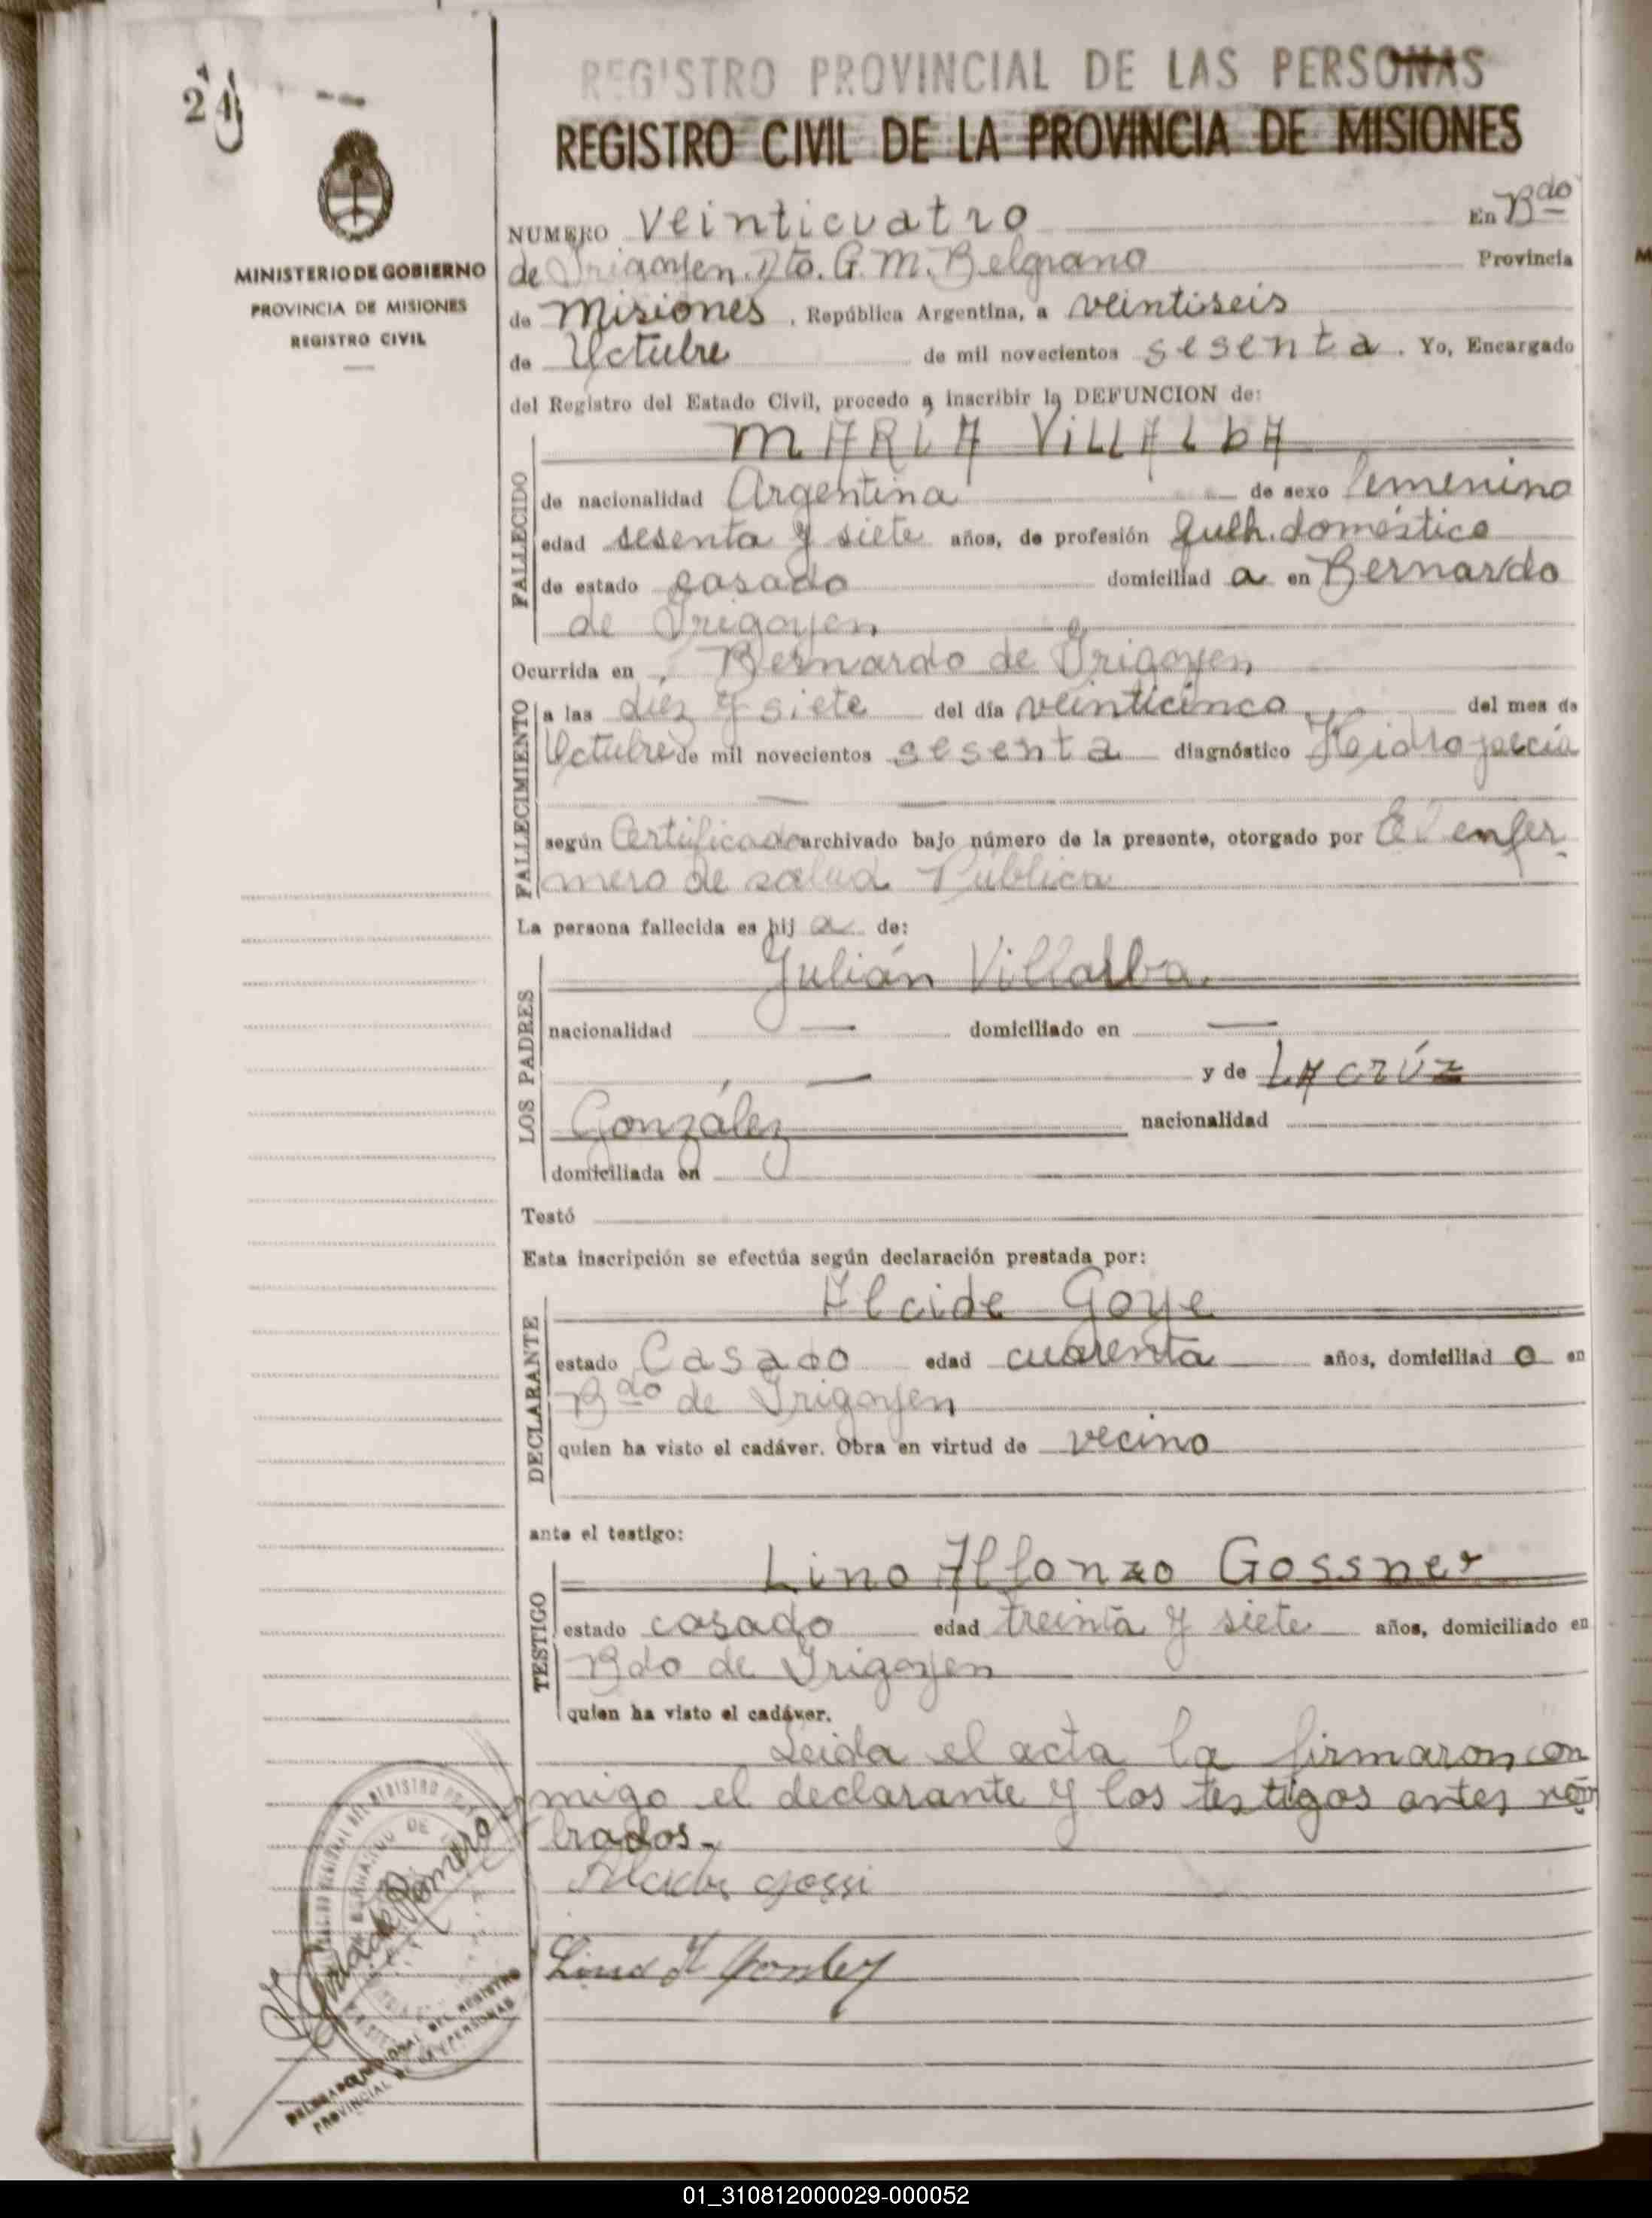 24
REGISTRO PROVINCIAL DE LAS PERSONAS
REGISTRO CIVIL DE LA PROVINCIA DE MISIONES
MINISTERIO DE GOBIERNO
PROVINCIA DE MISIONES
REGISTRO CIVIL
NUMERO veinticuatro En Bdo
de Irigoyen. Dto. G. M. Belgrano Provincia
de Misiones, República Argentina, a veintiseis
de Octubre de mil novecientos sesenta. Yo, Encargado
del Registro del Estado Civil, procedo a inscribir la DEFUNCION de:
MARIA VILLALBA
FALLECIDO
de nacionalidad Argentina de sexo femenino
edad sesenta y siete años, de profesión Queh. doméstico
de estado casado domiciliad a en Bernardo
de Irigoyen
Ocurrida en Bernardo de Irigoyen
FALLECIMIENTO
a las diez y siete del día veinticinco del mes de
Octubre de mil novecientos sesenta diagnóstico
según Certificado archivado bajo número de la presente, otorgado por El enfer
mero de salud Pública
La persona fallecida es hij a de:
LOS PADRES
Julián Villalba
nacionalidad — domiciliado en —
— y de LA CRÚZ
González nacionalidad
domiciliada en
Testó
Esta inscripción se efectúa según declaración prestada por:
DECLARANTE
Alcide Goye
estado Casado edad cuarenta años, domiciliad o en
Bdo de Irigoyen
quien ha visto el cadáver. Obra en virtud de vecino
ante el testigo:
TESTIGO
Lino Alfonzo Gossner
estado casado edad treinta y siete años, domiciliado en
Bdo de Irigoyen
quien ha visto el cadáver.
Leida el acta la firmaron con
migo el declarante y los testigos antes nom
brados.-
DELEGADO REGIONAL DEL REGISTRO
PROVINCIAL DE LAS PERSONAS
01_310812000029-000052